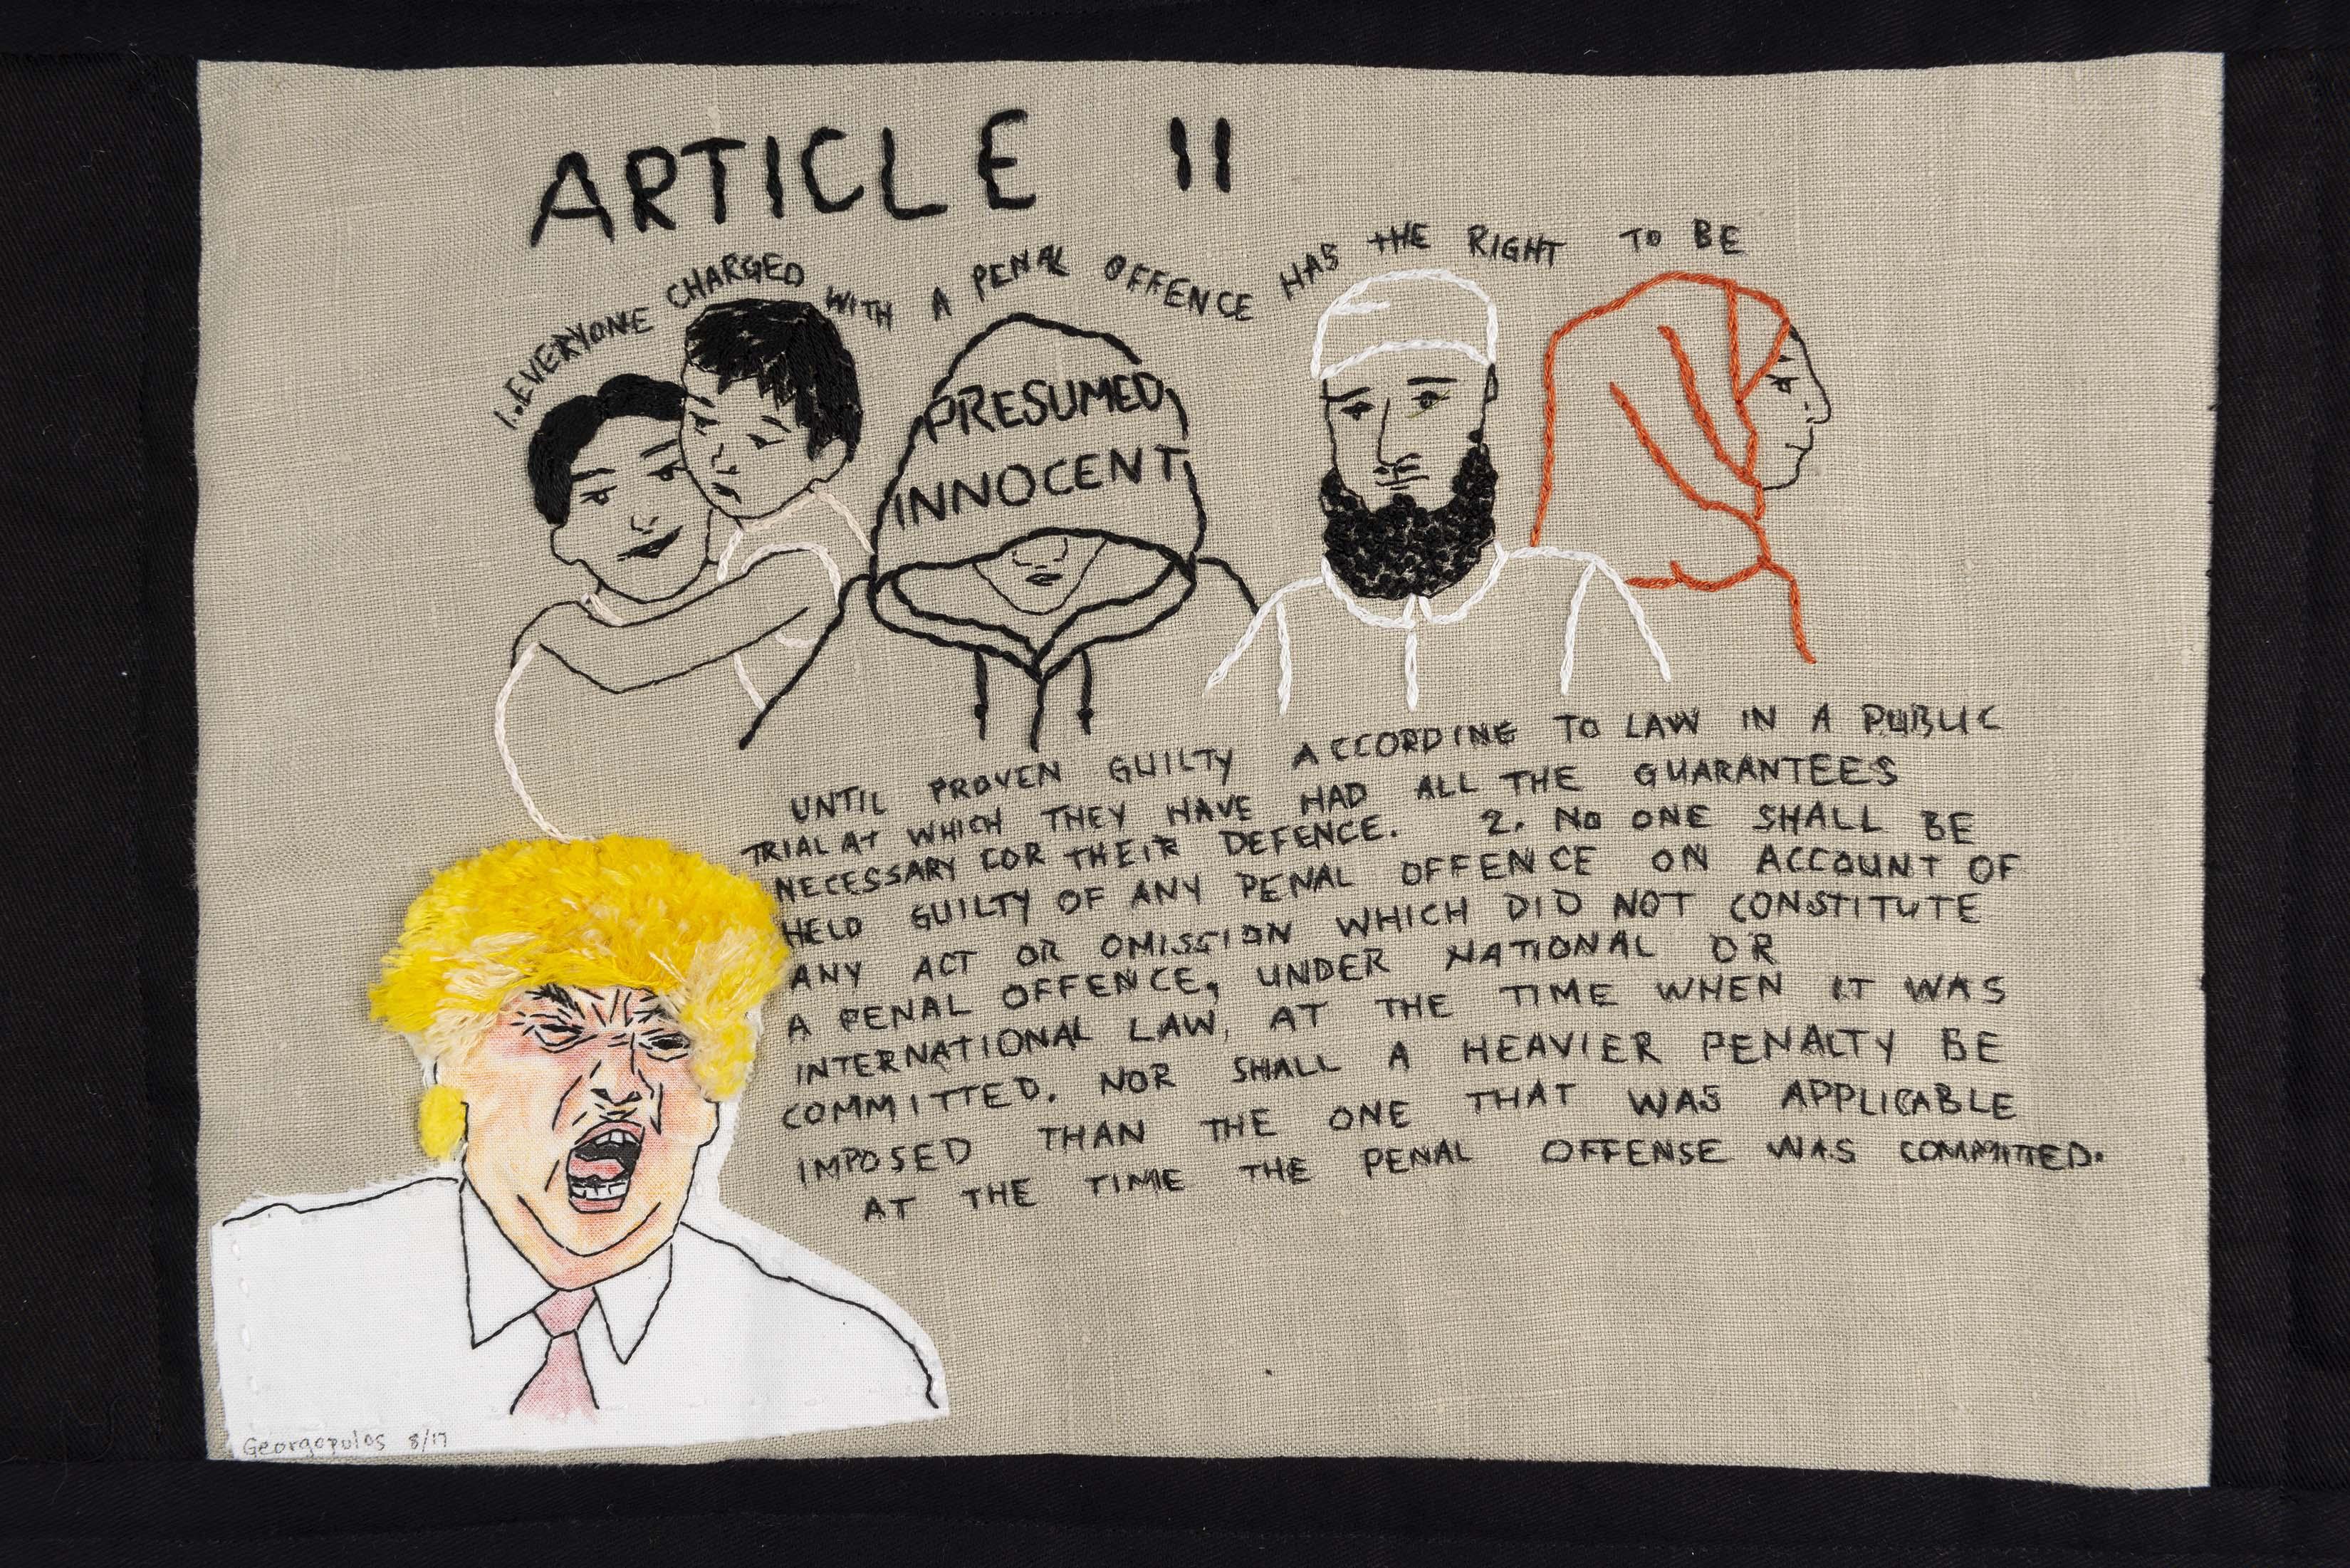 ARTICLE 11
1. EVERYONE CHARGED WITH A PENAL OFFENCE HAS THE RIGHT TO BE
PRESUMED
INNOCENT
UNTIL PROVEN GUILTY ACCORDING TO LAW IN A PUBLIC
TRIAL AT WHICH THEY HAVE HAD ALL THE GUARANTEES
NECESSARY FOR THEIR DEFENCE. 2. NO ONE SHALL BE
HELD GUILTY OF ANY PENAL OFFENCE ON ACCOUNT OF
ANY ACT OR OMISSION WHICH DID NOT CONSTITUTE
A PENAL OFFENCE, UNDER NATIONAL OR
INTERNATIONAL LAW, AT THE TIME WHEN IT WAS
COMMITTED. NOR SHALL A HEAVIER PENALTY BE
IMPOSED THAN THE ONE THAT WAS APPLICABLE
AT THE TIME THE PENAL OFFENSE WAS COMMITTED.
Georgopulos 8/17